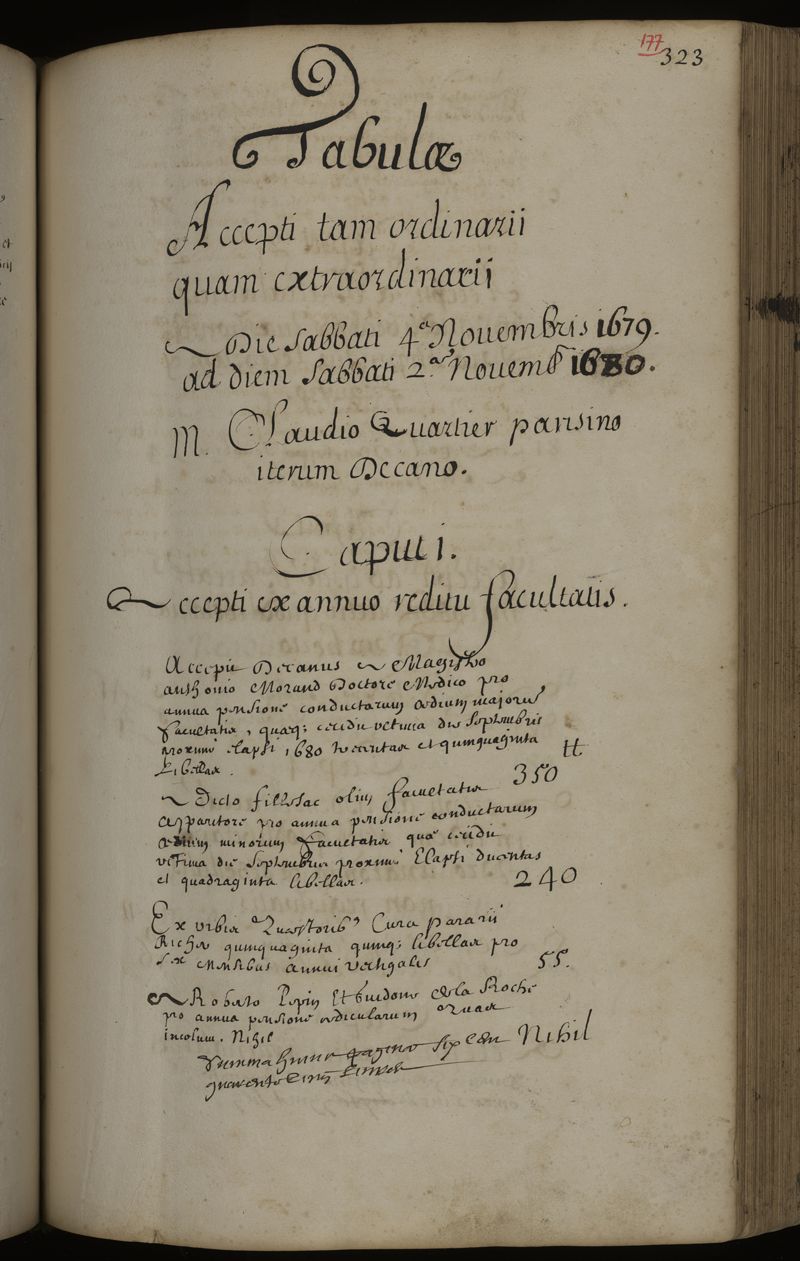 177
323
Tabulæ
Accepti tam ordinarii
quam extraordinarii
A Die Sabbati 4ª Nouembris 1679.
ad diem Sabbati 2am Nouemb 1680.
M. Claudio Quartier parisino
iterum Decano.
Caput 1.
Accepti ex annuo reditu facultatis.
Accepit Decanus a Magistro
anthonio Morand Doctore Medico pro
annua pensione conductarum ædium majorum
facultatis, quæ cecidit ultima die septembris
proxime elapsi 1680 trecentas et quinquaginta
Libellas. tt
350
A Dicto fillesac olim facultatis
Apparitore pro annua pensione conductarum
ædium minorum facultatis quæ cecidit
ultima die septembris proxime Elapsi ducentas
et quadraginta libellas.
240
Ex urbis Quæstorib9 Cura
quinquaginta quinq; libellas pro
sex mensibus annui vectigalis
55.
A Roberto Pepin Et guidone de la Roche
pro annua pensione ædicularum quas
incolunt. Nihil
Nihil
summa
quarente cinq Livres